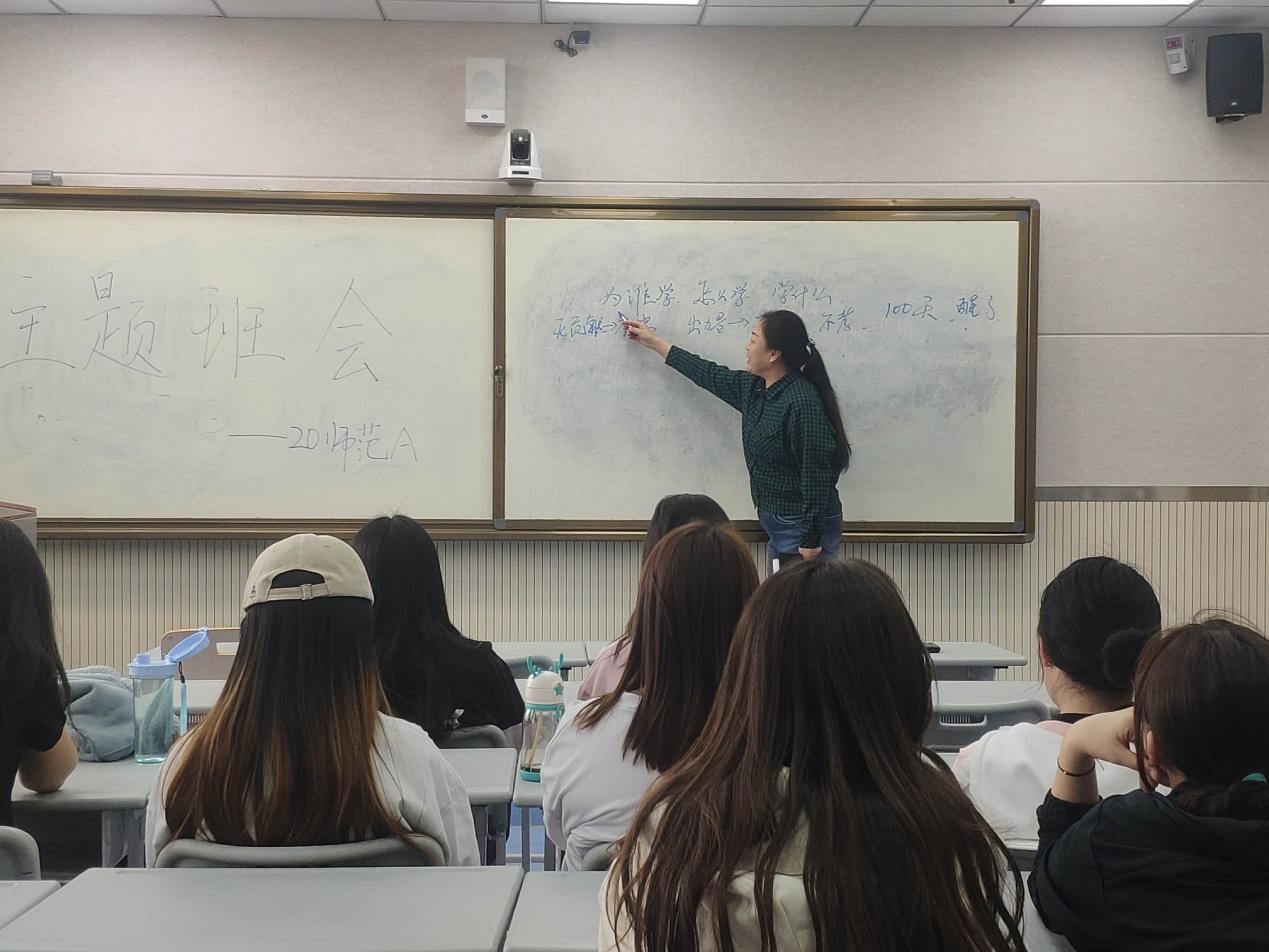 主题班会
——20师范A
为谁学 怎么学 学什么
无负载→ 出力量→ 不考 100天 醒了